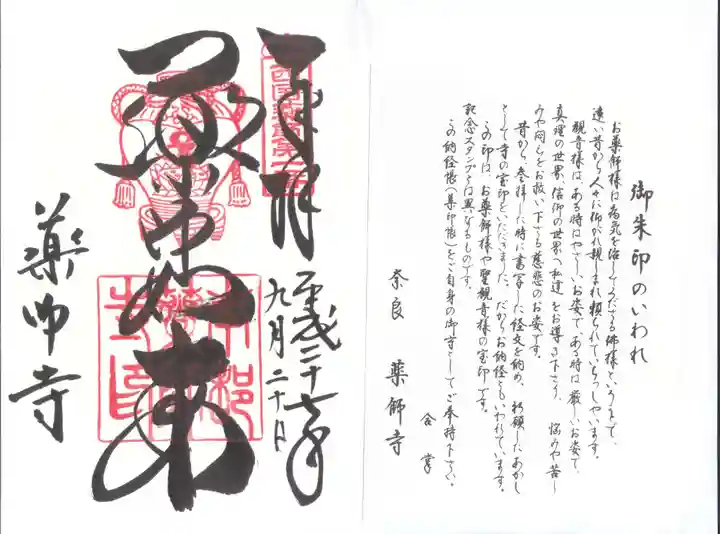 奉拝
平成二十七年
九月二十日
薬師如来
薬師寺
御朱印のいわれ
お薬師様は病気を治してくださる佛様ということで、
遠い昔から人々に仰がれ親しまれ頼られていらっしゃいます。
観音様は、ある時はやさしいお姿で、ある時は厳しいお姿で、
真理の世界、信仰の世界へ私達をお導き下さり、悩みや苦し
みや悶えをお救い下さる慈悲のお姿です。
昔から、参拝した時に書写した経文を納め、祈願したあかし
として寺の宝印をいただきました。だからお納経ともいわれています。
この印は、お薬師様や聖観音様の宝印です。
記念スタンプとは異なるものです。
この納経帳(集印帳)をご自身の御守としてご奉持下さい。
合掌
奈良 薬師寺